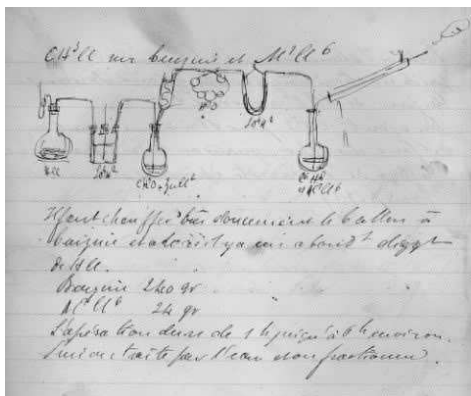 CH³Cl sur benzine et Al²Cl⁶
H²O
HCl
SO⁴H²
CH⁴O + ZnCl²
SO⁴H²
C⁶H⁶
+ Al²Cl⁶
Il faut chauffer très doucement le ballon à
benzine et alors il y a un abond^t dégag^t
de HCl.
Benzine 240 gr
Al²Cl⁶ 24 gr
L'opération dure de 1h jusqu'à 6h environ.
Ensuite traité par l'eau fractionné.